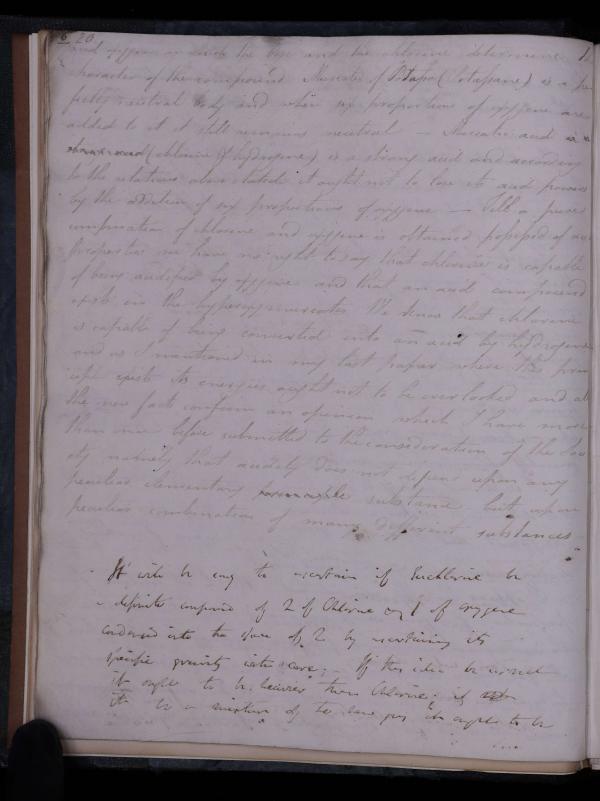 20
and oxygene in which the base and the chlorine determine
character of the compound Muriate of Potassa (Potassane) is a per
fectly neutral body and when six proportions of oxygene are
added to it it still remains neutral – Muriatic acid is a
(chlorine & hydrogene) is a strong acid and according
to the relations above stated it ought not to lose its acid powers
by the addition of six proportions of oxygene – Till a pure
combination of chlorine and oxygene is obtained possessed of acid
properties we have no right to say that chlorine is capable
of being acidified by oxygene and that an acid compound
exists in the hyperoxymuriates We know that chlorine
is capable of being converted into an acid by hydrogene
and as I mentioned in my last paper where this prin
ciple exists its energies ought not to be overlooked and all
the new facts confirm an opinion which I have more
than once before submitted to the consideration of the Soci
ety namely that acidity does not depend upon any
peculiar elementary substance but upon
peculiar combinations of many different substances
It will be easy to ascertain if Euchlorine be
a definite compound of 2 of Chlorine & 1 of oxygene
condensed into the space of 2 by ascertaining its
specific gravity with care; – If this idea be correct
it ought to be heavier than Chlorine; if
it be a mixture of the two gases it ought to be